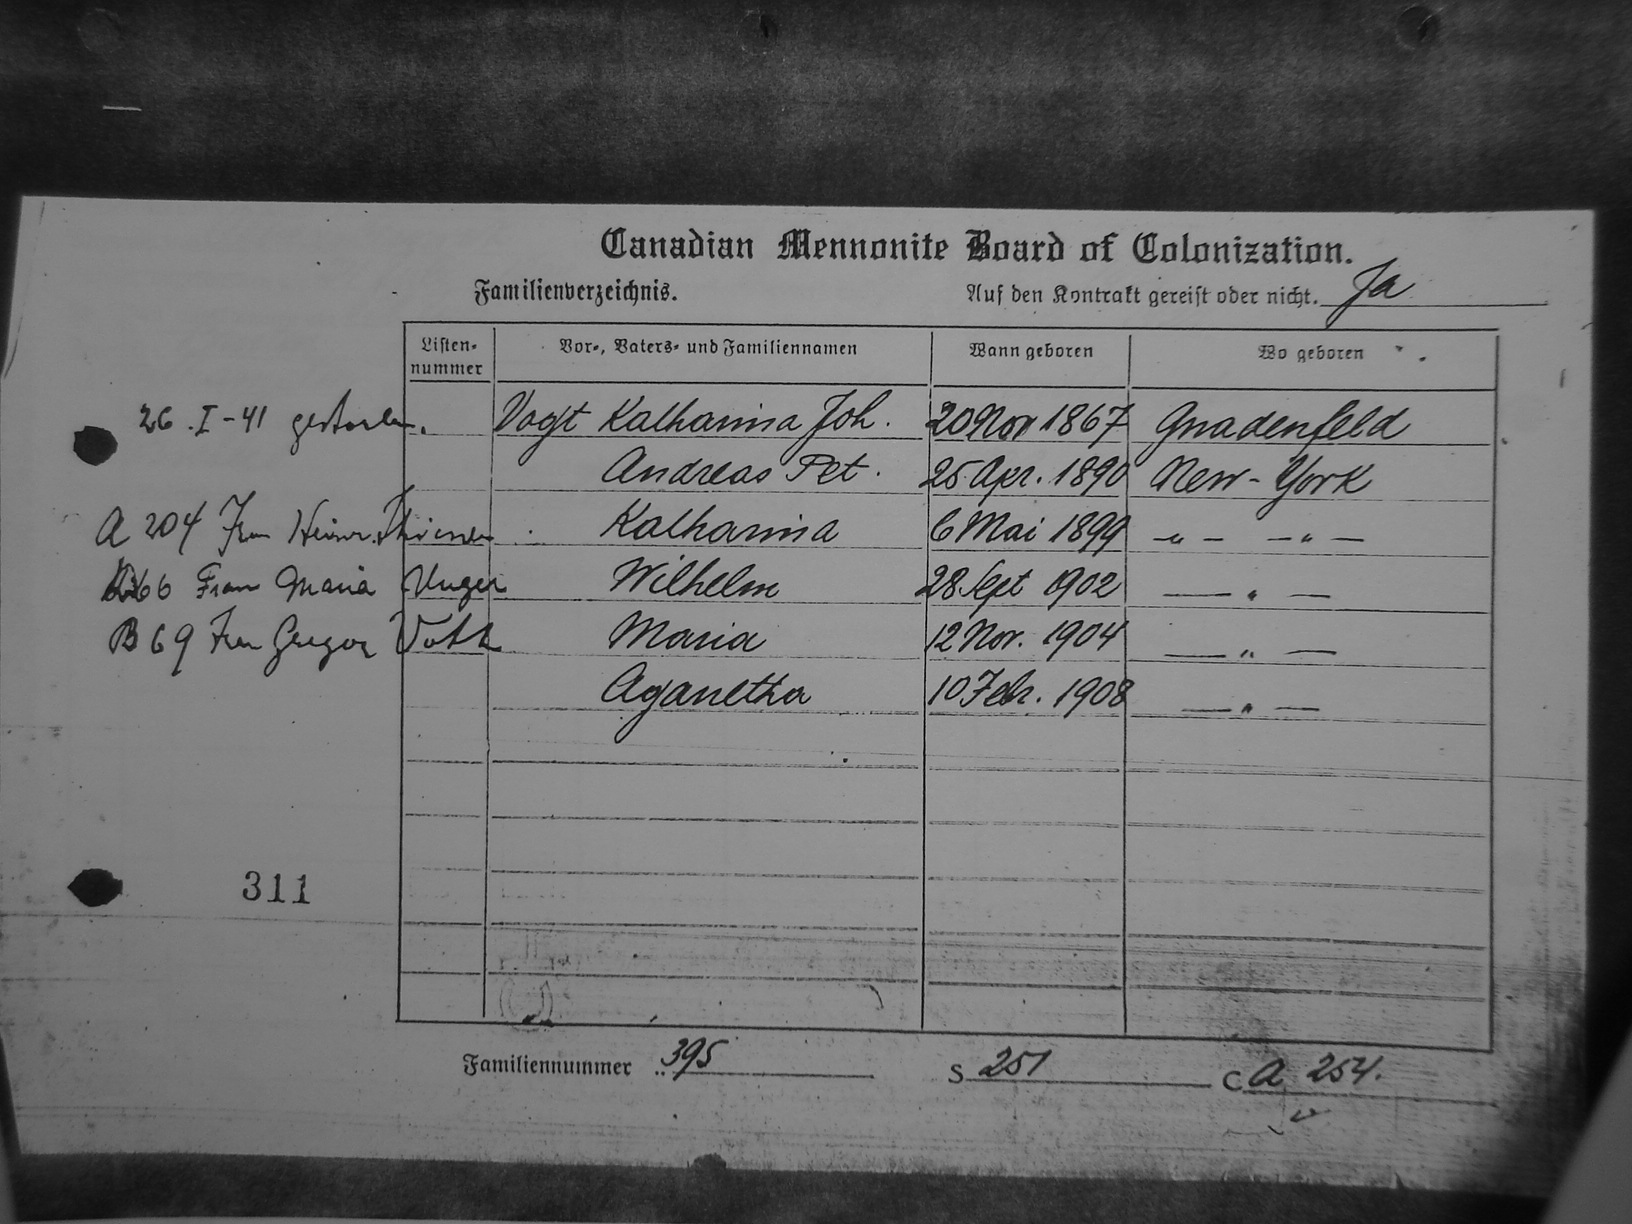 Canadian Mennonite Board of Colonization.
Familienverzeichnis. Auf den Kontrakt gereist oder nicht. Ja
Listen-nummer Vor-, Vaters- und Familiennamen Wann geboren Wo geboren
26. I-41 gestorben. Vogt Katharina Joh. 20 Nov 1867 Gnadenfeld
Andreas Pet. 25 Apr. 1890 New-York
A 204 Frau Heinr. Thiessen Katharina 6 Mai 1899 — " — — " —
66 Frau Maria Unger Wilhelm 28 Sept 1902 — " —
B 69 Frau Gregor Voth Maria 12 Nov. 1904 — " —
Aganetha 10 Feb. 1908 — " —
311
Familiennummer 395 S 251 C A 254.